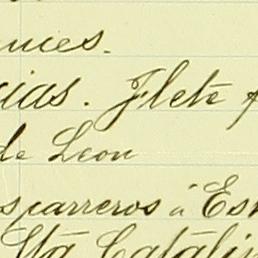 uces.
cias. Flete
de Leon
s carreros á Est
Sta Catalin